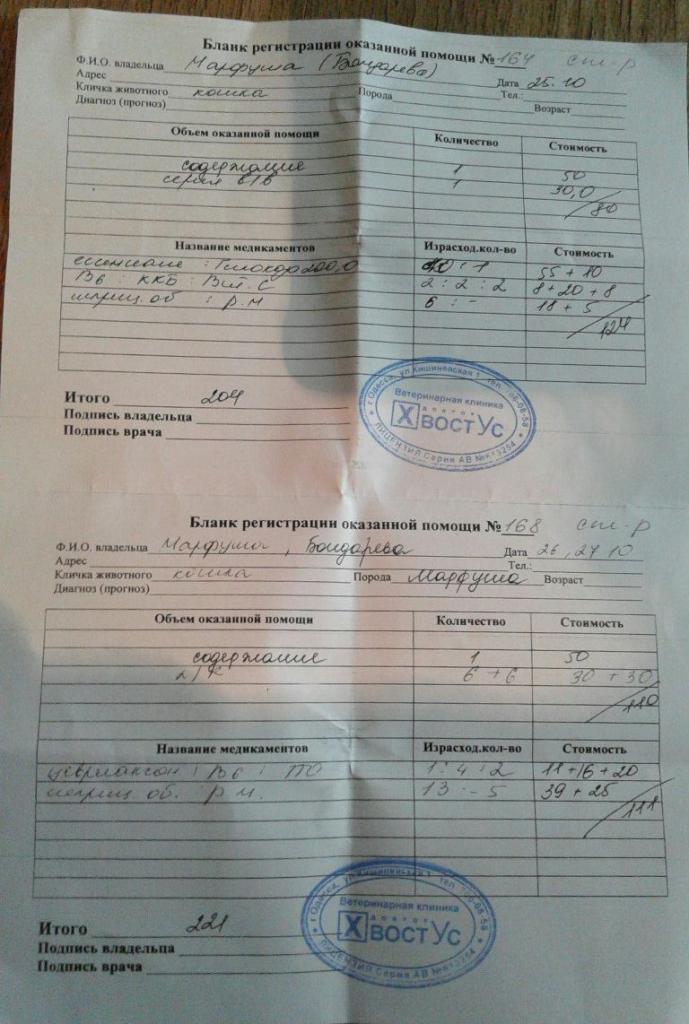 Бланк регистрации оказанной помощи № 164 стм-р
Ф.И.О. владельца Марфуша (Бондарева)
Адрес Дата 25.10
Кличка животного кошка Порода Тел.:
Диагноз (прогноз) Возраст
Объем оказанной помощи Количество Стоимость
содержание 1 50
1 30,0
/80
Название медикаментов Израсход.кол-во Стоимость
: 1 55 + 10
В6 : ККБ : Вит. С 2 : 2 : 2 8 + 20 + 8
шприц. об : р.м 6 : - 18 + 5
/124
Итого 204
Подпись владельца
Подпись врача
г.Одесса, ул.Кишиневская 1, тел.
Ветеринарная клиника
доктор
ХвостУс
ЛИЦЕНЗИЯ Серия АВ
Бланк регистрации оказанной помощи № 168 стм-р
Ф.И.О. владельца Марфуша, Бондарева Дата 26, 27 10
Адрес Тел.:
Кличка животного кошка Порода Марфуша Возраст
Диагноз (прогноз)
Объем оказанной помощи Количество Стоимость
содержание 1 50
6 + 6 30 + 30
/110
Название медикаментов Израсход.кол-во Стоимость
: В6 : 1 : 4 : 2 11 + 16 + 20
шприц. об. : р.м. 13 : - 5 39 + 25
/111
Итого 221
Подпись владельца
Подпись врача
г.Одесса, ул.Кишиневская 1, тел.
Ветеринарная клиника
доктор
ХвостУс
ЛИЦЕНЗИЯ Серия АВ